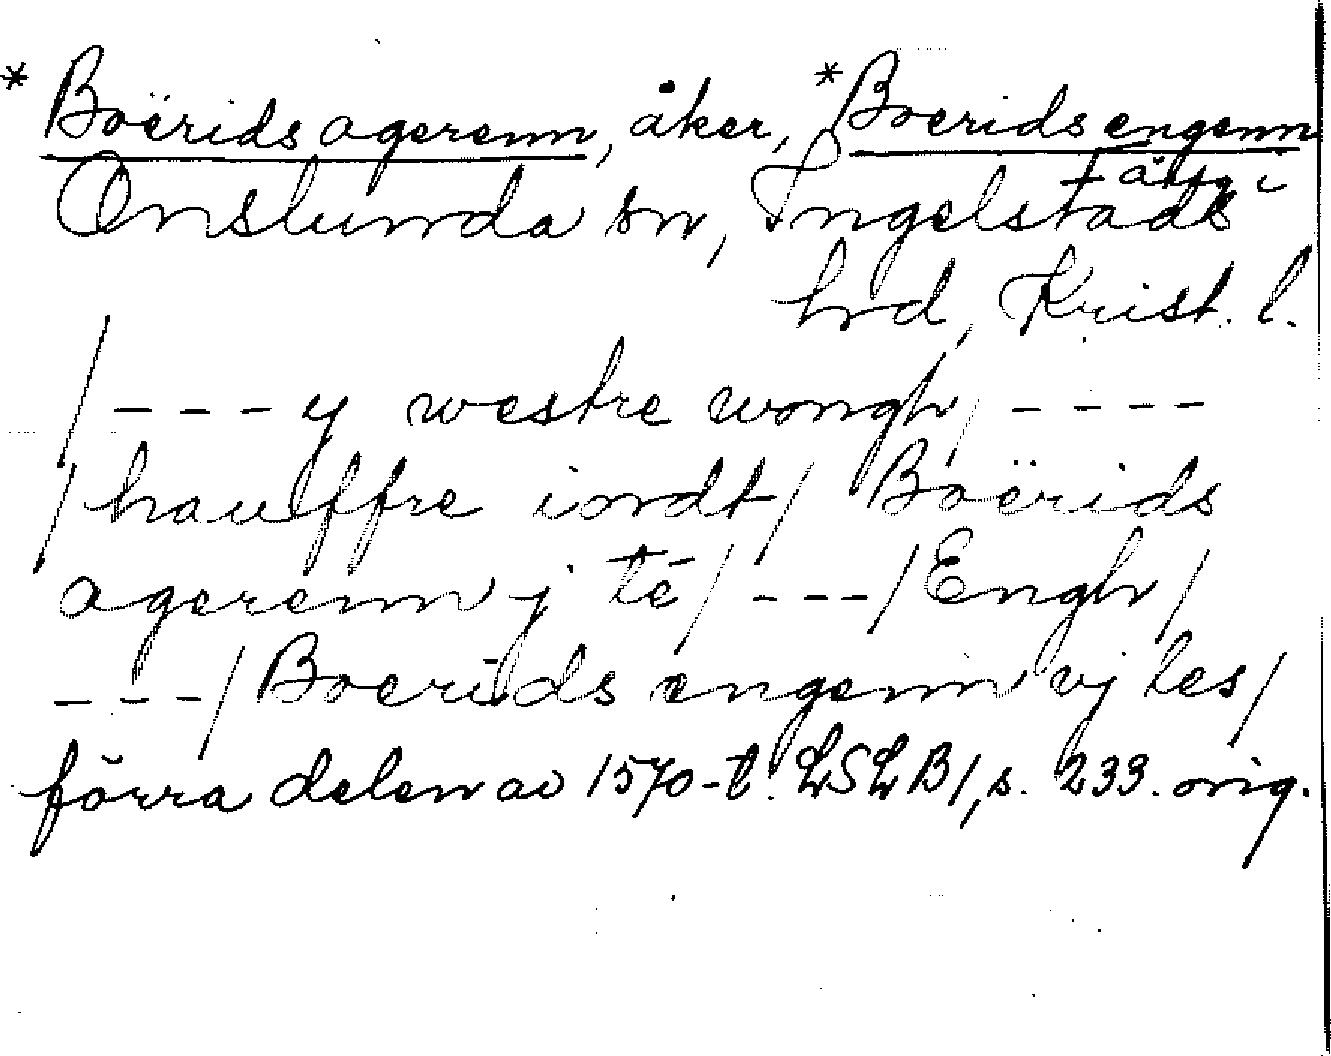 * Boërids agerenn, åker, * Boerids engenn
äng i
Onslunda sn, Ingelstads
hrd, Krist. l.
/ - - - y westre wongh / - - - -
/ hauffre iordt / Boërids
agerenn j té / - - - / Engh /
- - - / Boerids engenn vj les /
förra delen av 1570-t. LSLB 1, s. 233. orig.